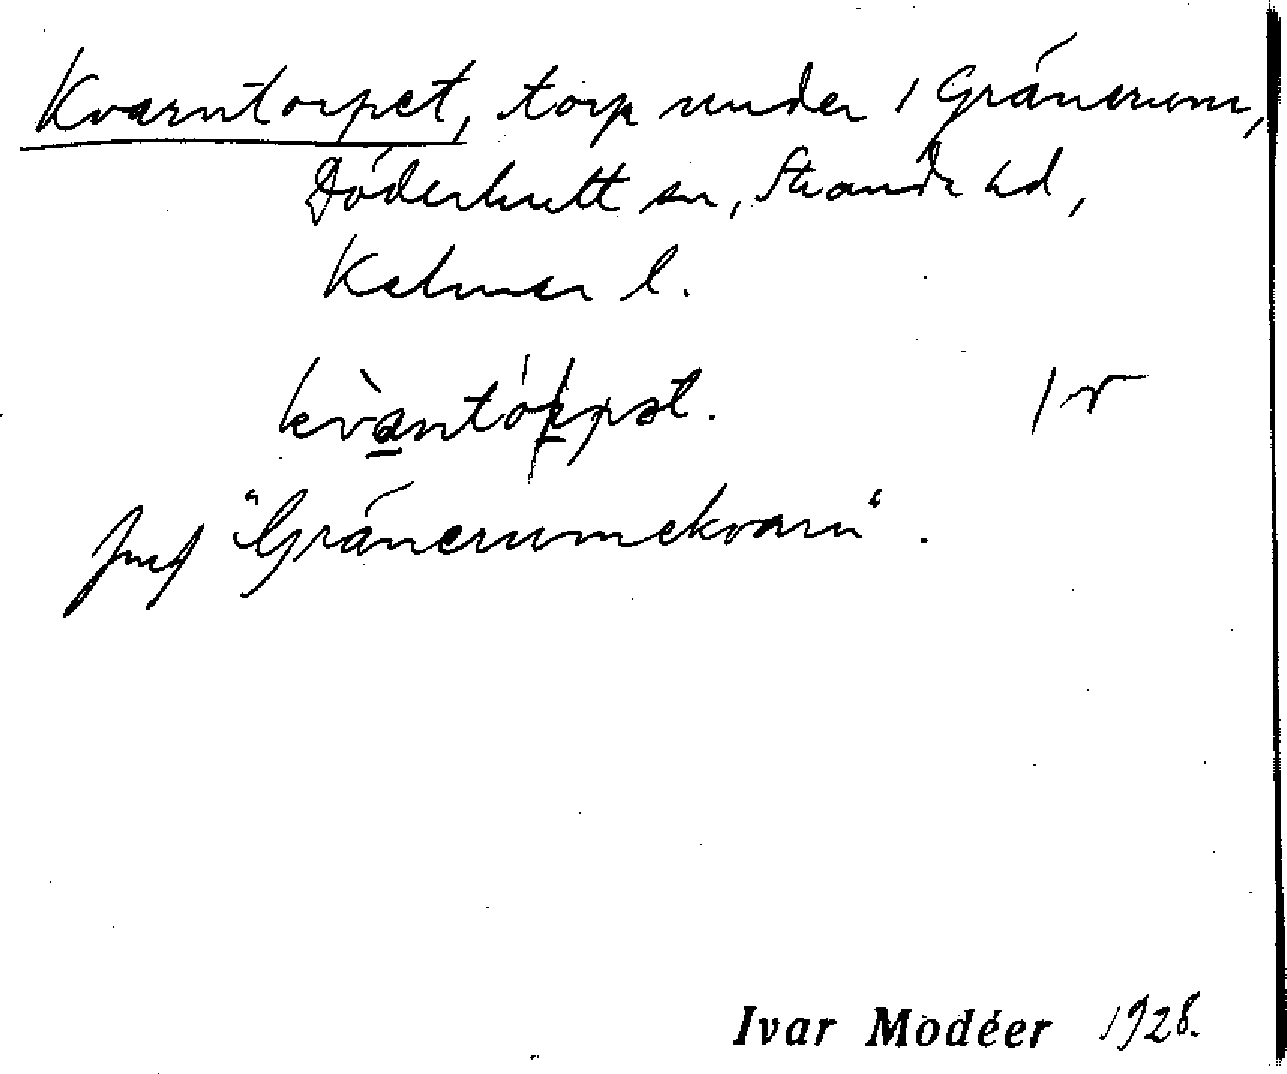 Kvarntorpet, torp under 1 Gränerum,
Döderhult sn, Stranda hd,
Kalmar l.
Jmf "Gränerumekvarn".
Ivar Modéer 1928.